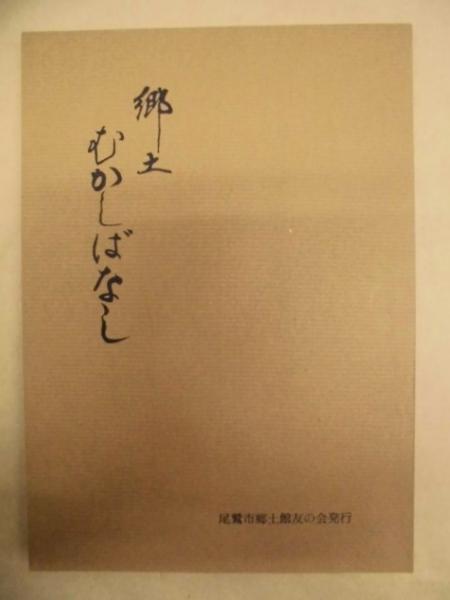 郷土
むかしばなし
尾鷲市郷土館友の会発行